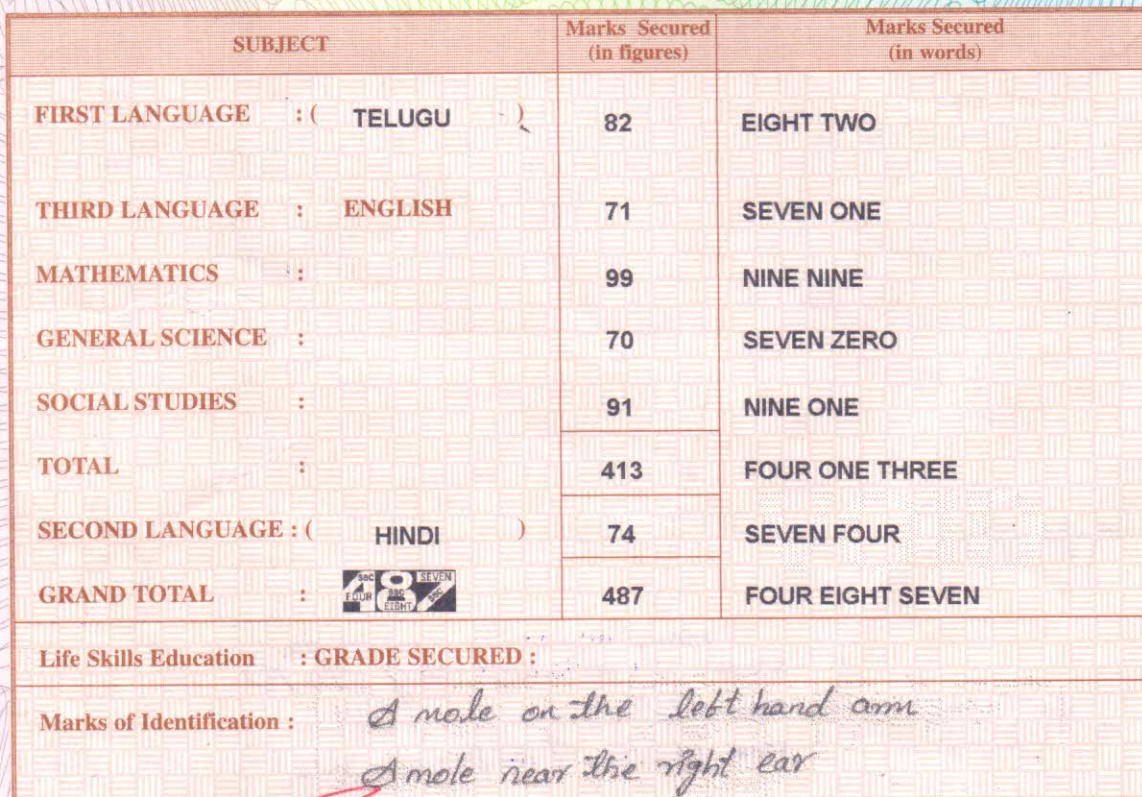 SUBJECT Marks Secured (in figures) Marks Secured (in words)
FIRST LANGUAGE : ( TELUGU ) 82 EIGHT TWO
THIRD LANGUAGE : ENGLISH 71 SEVEN ONE
MATHEMATICS : 99 NINE NINE
GENERAL SCIENCE : 70 SEVEN ZERO
SOCIAL STUDIES : 91 NINE ONE
TOTAL : 413 FOUR ONE THREE
SECOND LANGUAGE : ( HINDI ) 74 SEVEN FOUR
GRAND TOTAL : SSC FOUR 4 SSC EIGHT 8 SEVEN SSC 7 487 FOUR EIGHT SEVEN
Life Skills Education : GRADE SECURED :
Marks of Identification : A mole on the left hand arm
A mole near the right ear